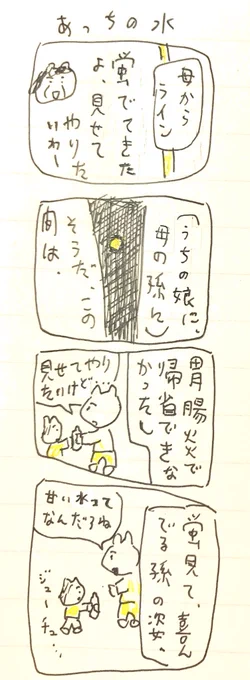 あっちの水
母から
ライン
蛍でてきた
よ、見せて
やりた
いわー
(うちの娘に、
母の孫に)
そうだ、この
間は、
胃腸炎で
帰省できな
かったし
見せてやり
たいけど…
蛍見て、喜ん
でる孫の姿。
甘い水って
なんだろね
ジュー
チュ…